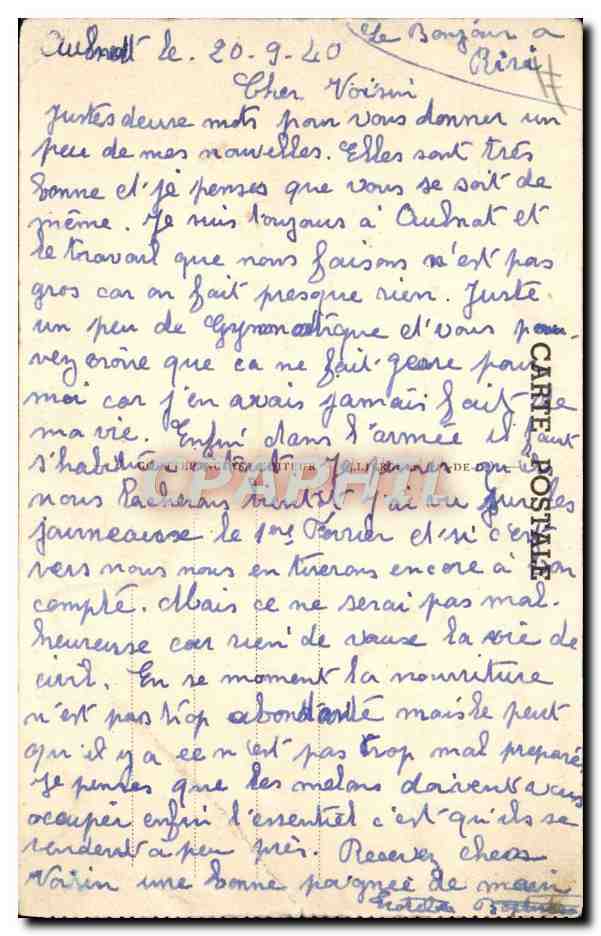 Le Bonjour a
Riri
Aulnat le. 20-9-40
Cher Voisin
Justes deuxe mots pour vous donner un
peu de mes nouvelles. Elles sont très
bonne et je penses que vous se soit de
même. Je suis toujours à Aulnat et
le travail que nous faisons n'est pas
gros car on fait presque rien. Juste
un peu de Gymnastique et vous pour-
vez croire que ca ne fait guere pour
moi car j'en avais jamais fait de
ma vie. Enfin dans l'armée il faut
s'habitué
nous lacherons bientot j'ai vu sur les
journeause le 1er Février et si c'est
vers nous nous en tirerons encore à bon
compte. Mais ce ne serai pas mal-
heureuse car rien de vause la vie de
civil. En se moment la nourriture
n'est pas trop abondante mais le peut
qu'il y a ee n'est pas trop mal preparé
Je penses que les melons doivent vous
occuper enfin l'essentiel c'est qu'ils se
vendent a peu près. Recevez chers
Voisin une bonne poignée de main
CARTE POSTALE
CPAPHIL